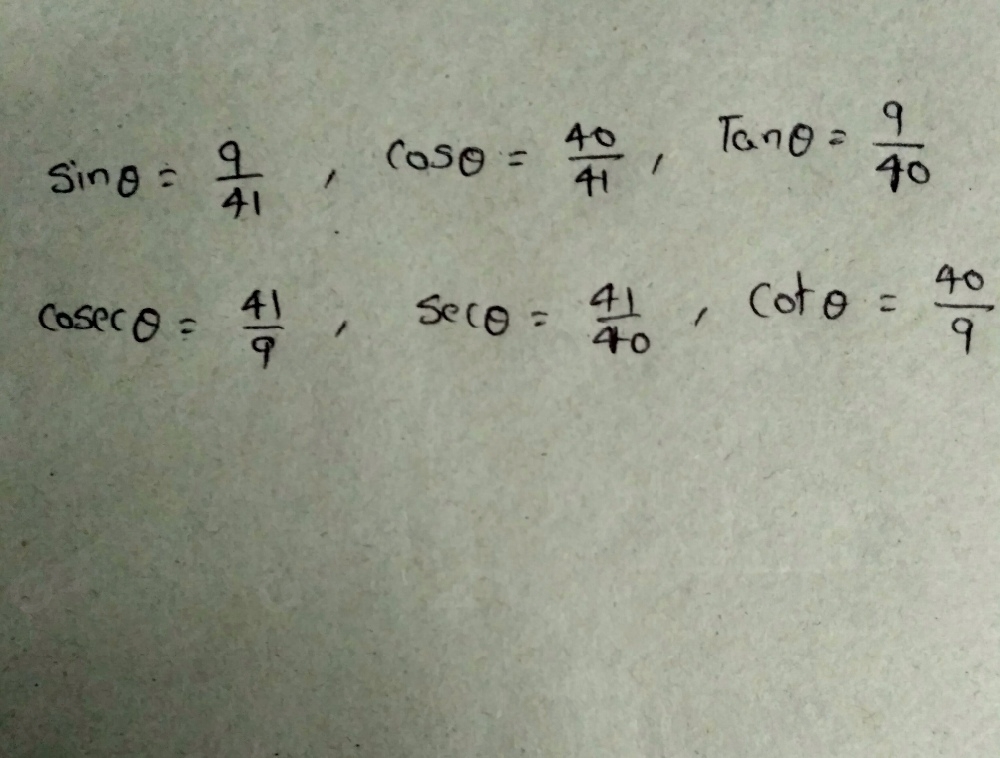 sinθ = 9/41 , cosθ = 40/41 , Tanθ = 9/40
cosecθ = 41/9 , secθ = 41/40 , cotθ = 40/9